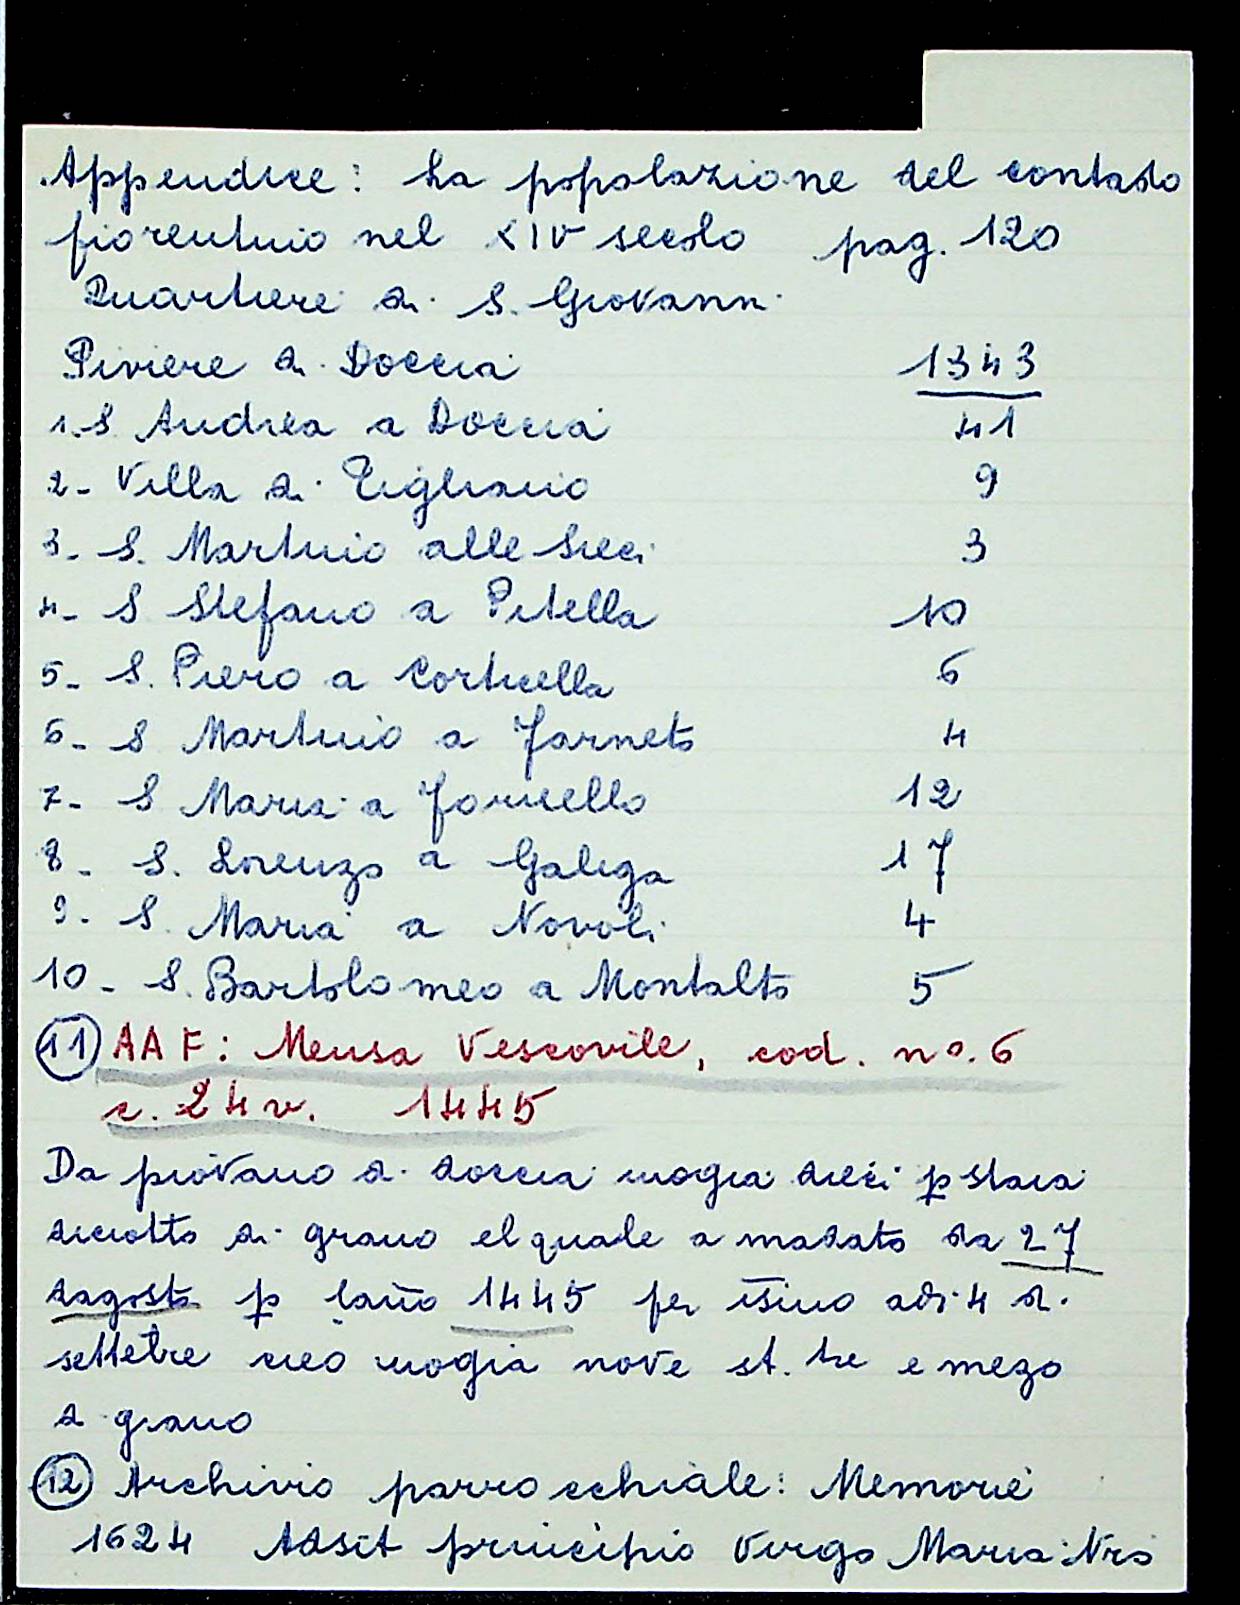 Appendice: La popolazione del contado
fiorentino nel XIV secolo pag. 120
Quartiere di S. Giovanni
Piviere di Doccia 1343
1. S. Andrea a Doccia 41
2- Villa di Tigliano 9
3- S. Martino alle Sieci 3
4- S Stefano a Pitella 10
5- S. Piero a Corticella 6
6- S Martino a Farneto 4
7- S Maria a Fornello 12
8- S. Lorenzo a Galiga 17
9- S. Maria a Novoli 4
10- S. Bartolomeo a Montalto 5
11 AAF: Mensa Vescovile, cod. no. 6
c. 24 v. 1445
Da piovano di doccia mogia dieci p staia
diciotto di grano el quale a madato da 27
dagosto p lano 1445 per isino adi 4 di
settebre cieo mogia nove st. tre e mezo
di grano
12 Archivio parrocchiale: Memorie
1624 Adsit principio Virgo Maria Nro